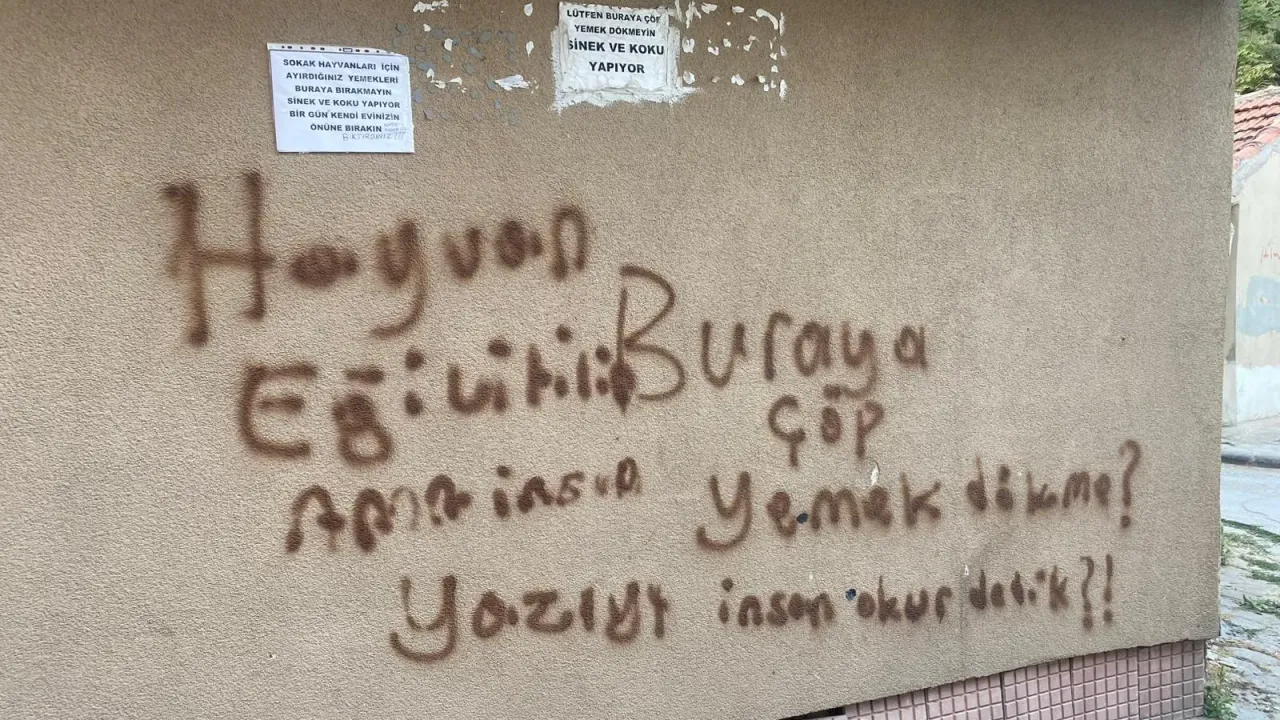 LÜTFEN BURAYA ÇÖP
YEMEK DÖKMEYİN
SİNEK VE KOKU
YAPIYOR
SOKAK HAYVANLARI İÇİN
AYIRDIĞINIZ YEMEKLERİ
BURAYA BIRAKMAYIN
SİNEK VE KOKU YAPIYOR
BİR GÜN KENDİ EVİNİZİN
ÖNÜNE BIRAKIN
Hayvan
Eğitilir
AMA insan
Buraya
çöp
yemek dökme?
yazıyı insan okur dedik?!